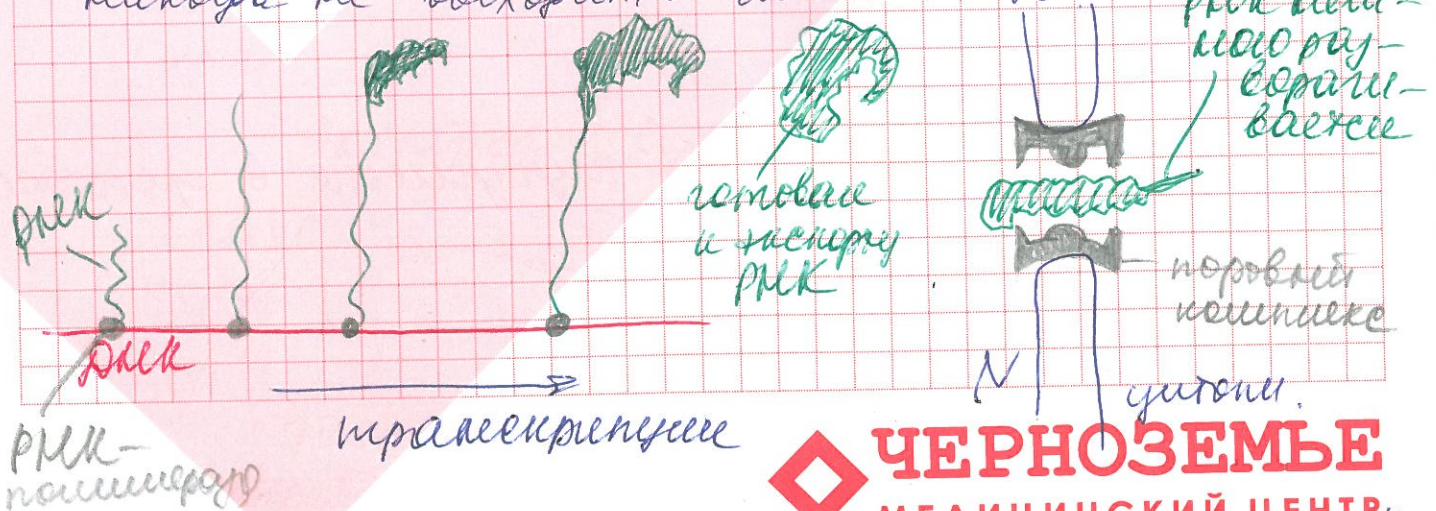 никогда не выходит
РНК
ДНК
РНК-
полимераза
транскрипция
готовая
к экспорту
РНК
РНК
много раз-
ворачи-
вается
поровый
комплекс
N
цитопл.
ЧЕРНОЗЕМЬЕ
МЕДИЦИНСКИЙ ЦЕНТР